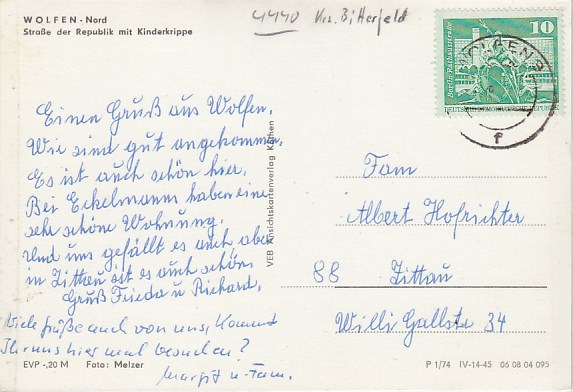 WOLFEN - Nord
Straße der Republik mit Kinderkrippe
4440 Krs. Bitterfeld
10
Berlin, Rathausstraße
DEUTSCHE DEMOKRATISCHE REPUBLIK
WOLFEN
f
Einen Gruß aus Wolfen.
Wir sind gut angekommen.
Es ist auch schön hier.
Bei Eckelmann haben eine
sehr schöne Wohnung.
Und uns gefällt es auch aber
in Zittau ist es auch schön
Gruß Frieda u Richard.
Viele Grüße auch von uns, kommt
Ihr uns hier mal besuchen?
Margit u. Fam.
VEB Ansichtskartenverlag Köthen
Fam
Albert Hofrichter
88 Zittau
Willi Gallstr 34
EVP -,20 M Foto: Melzer
P 1/74 IV-14-45 06 08 04 095